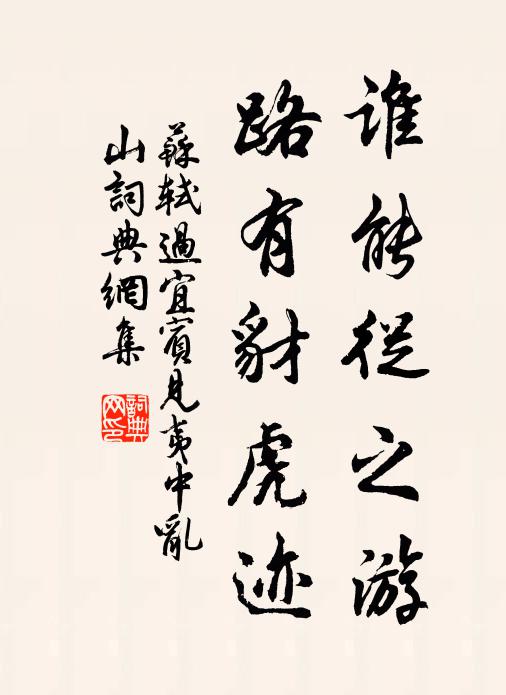 谁能從之游
路有豺虎迹
蘇軾過宜賓見夷中亂
山詞典網集
詞典
网印